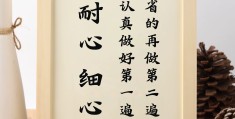 省的再做第二遍
认真做好第一遍
耐心 细心